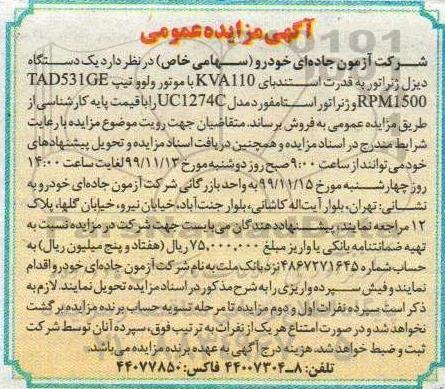 آگهی مزایده عمومی
شرکت آزمون جاده‌ای خودرو (سهامی خاص) در نظر دارد یک دستگاه
دیزل ژنراتور به قدرت استندبای KVA110 با موتور ولوو تیپ TAD531GE
RPM1500 و ژنراتور استامفورد مدل UC1274C را با قیمت پایه کارشناسی از
طریق مزایده عمومی به فروش برساند. متقاضیان جهت رویت موضوع مزایده با رعایت
شرایط مندرج در اسناد مزایده و همچنین دریافت اسناد مزایده و تحویل پیشنهادهای
خود می‌توانند از ساعت ۹:۰۰ صبح روز دوشنبه مورخ ۹۹/۱۱/۱۳ لغایت ساعت ۱۴:۰۰
روز چهارشنبه مورخ ۹۹/۱۱/۱۵ به واحد بازرگانی شرکت آزمون جاده‌ای خودرو به
نشانی: تهران، بلوار آیت‌اله کاشانی، بلوار جنت‌آباد، خیابان نیرو، خیابان گلها، پلاک
۱۲ مراجعه نمایند، پیشنهاددهندگان می‌بایست جهت شرکت در مزایده نسبت به
تهیه ضمانتنامه بانکی یا واریز مبلغ ۷۵,۰۰۰,۰۰۰ ریال (هفتاد و پنج میلیون ریال) به
حساب شماره ۴۸۶۷۲۷۱۶۴۵ نزد بانک ملت به نام شرکت آزمون جاده‌ای خودرو اقدام
نمایند و فیش سپرده واریزی را به شرح مذکور در اسناد مزایده تحویل نمایند. لازم به
ذکر است سپرده نفرات اول و دوم مزایده تا مرحله تسویه حساب برنده مزایده برگشت
نخواهد شد و در صورت امتناع هر یک از نفرات به ترتیب فوق، سپرده آنان توسط شرکت
ثبت و ضبط خواهد شد. هزینه درج آگهی به عهده برنده مزایده می‌باشد.
تلفن: ۸ـ۴۴۰۰۷۳۰۴ فاکس: ۴۴۰۷۷۸۵۰